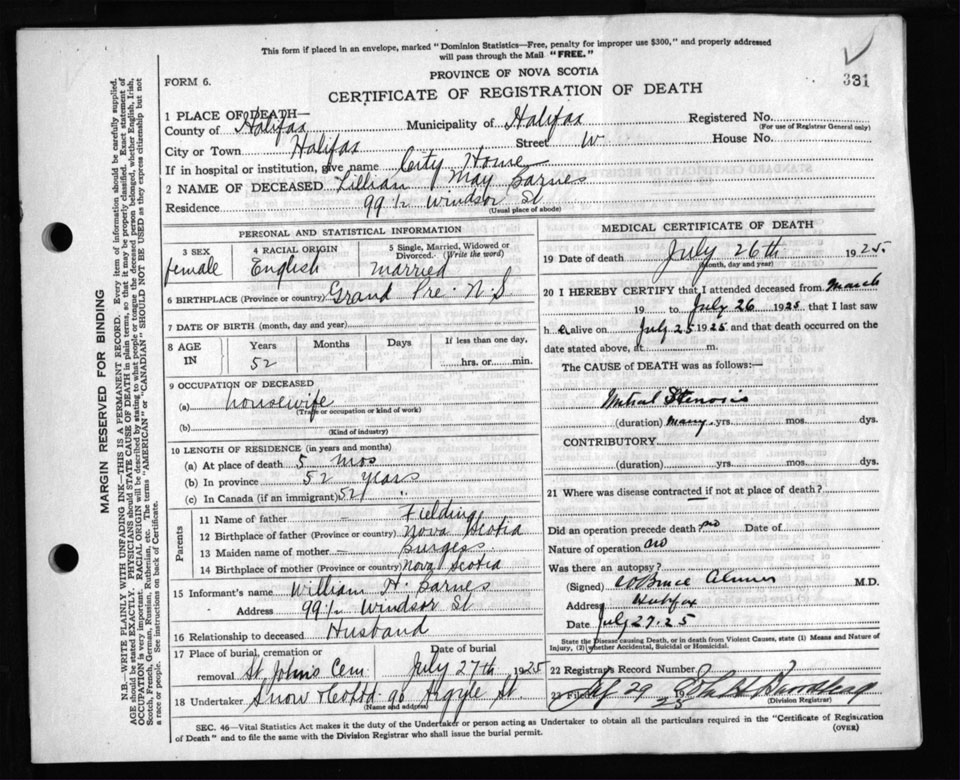 This form if placed in an envelope, marked "Dominion Statistics—Free, penalty for improper use $300," and properly addressed
will pass through the Mail "FREE."
331
PROVINCE OF NOVA SCOTIA
FORM 6.
CERTIFICATE OF REGISTRATION OF DEATH
1 PLACE OF DEATH—
County of Halifax Municipality of Halifax Registered No.
(For use of Registrar General only)
City or Town Halifax Street W House No.
If in hospital or institution, give name City Home
2 NAME OF DECEASED Lillian May Barnes
Residence 99 1/2 Windsor St
(Usual place of abode)
PERSONAL AND STATISTICAL INFORMATION
3 SEX 4 RACIAL ORIGIN 5 Single, Married, Widowed or
Divorced. (Write the word)
female English married
6 BIRTHPLACE (Province or country) Grand Pre N.S
7 DATE OF BIRTH (month, day and year)
8 AGE IN Years Months Days If less than one day,
52 hrs. or min.
9 OCCUPATION OF DECEASED
(a) housewife
(Trade or occupation or kind of work)
(b)
(Kind of industry)
10 LENGTH OF RESIDENCE (in years and months)
(a) At place of death 5 mos
(b) In province 52 years
(c) In Canada (if an immigrant) 52 "
Parents
11 Name of father — Fielding
12 Birthplace of father (Province or country) Nova Scotia
13 Maiden name of mother — Burges
14 Birthplace of mother (Province or country) Nova Scotia
15 Informant's name William H. Barnes
Address 99 1/2 Windsor St
16 Relationship to deceased Husband
17 Place of burial, cremation or removal St John's Cem Date of burial July 27th 1925
18 Undertaker Snow & Co Ltd 90 Argyle St.
(Name and address)
MEDICAL CERTIFICATE OF DEATH
19 Date of death July 26th 1925
(Month, day and year)
20 I HEREBY CERTIFY that I attended deceased from March
19 to July 26 1925 that I last saw
h er alive on July 25 1925 and that death occurred on the
date stated above, at m.
The CAUSE of DEATH was as follows:—
Mitral Stenosis
(duration) many yrs. mos. dys.
CONTRIBUTORY
(duration) yrs. mos. dys.
21 Where was disease contracted if not at place of death?
Did an operation precede death? no Date of
Nature of operation no
Was there an autopsy?
(Signed) Bruce Almon M.D.
Address Halifax
Date July 27. 25
State the Disease causing Death, or in death from Violent Causes, state (1) Means and Nature of
Injury, (2) whether Accidental, Suicidal or Homicidal.
22 Registrar's Record Number
23 Filed 29 1925
(Division Registrar)
SEC. 46—Vital Statistics Act makes it the duty of the Undertaker or person acting as Undertaker to obtain all the particulars required in the "Certificate of Registration
of Death" and to file the same with the Division Registrar who shall issue the burial permit.
(OVER)
MARGIN RESERVED FOR BINDING
N.B.—WRITE PLAINLY WITH UNFADING INK—THIS IS A PERMANENT RECORD. Every item of information should be carefully supplied.
AGE should be stated EXACTLY. PHYSICIANS should STATE CAUSE OF DEATH in plain terms, so that it may be properly classified. Exact statement of
OCCUPATION is very important. RACIAL ORIGIN will be described by stating to what people or tongue the deceased person belonged, whether English, Irish,
Scotch, French, German, Russian, Ruthenian, etc. The terms "AMERICAN" or "CANADIAN" SHOULD NOT BE USED as they express citizenship but not
a race or people. See instructions on back of Certificate.